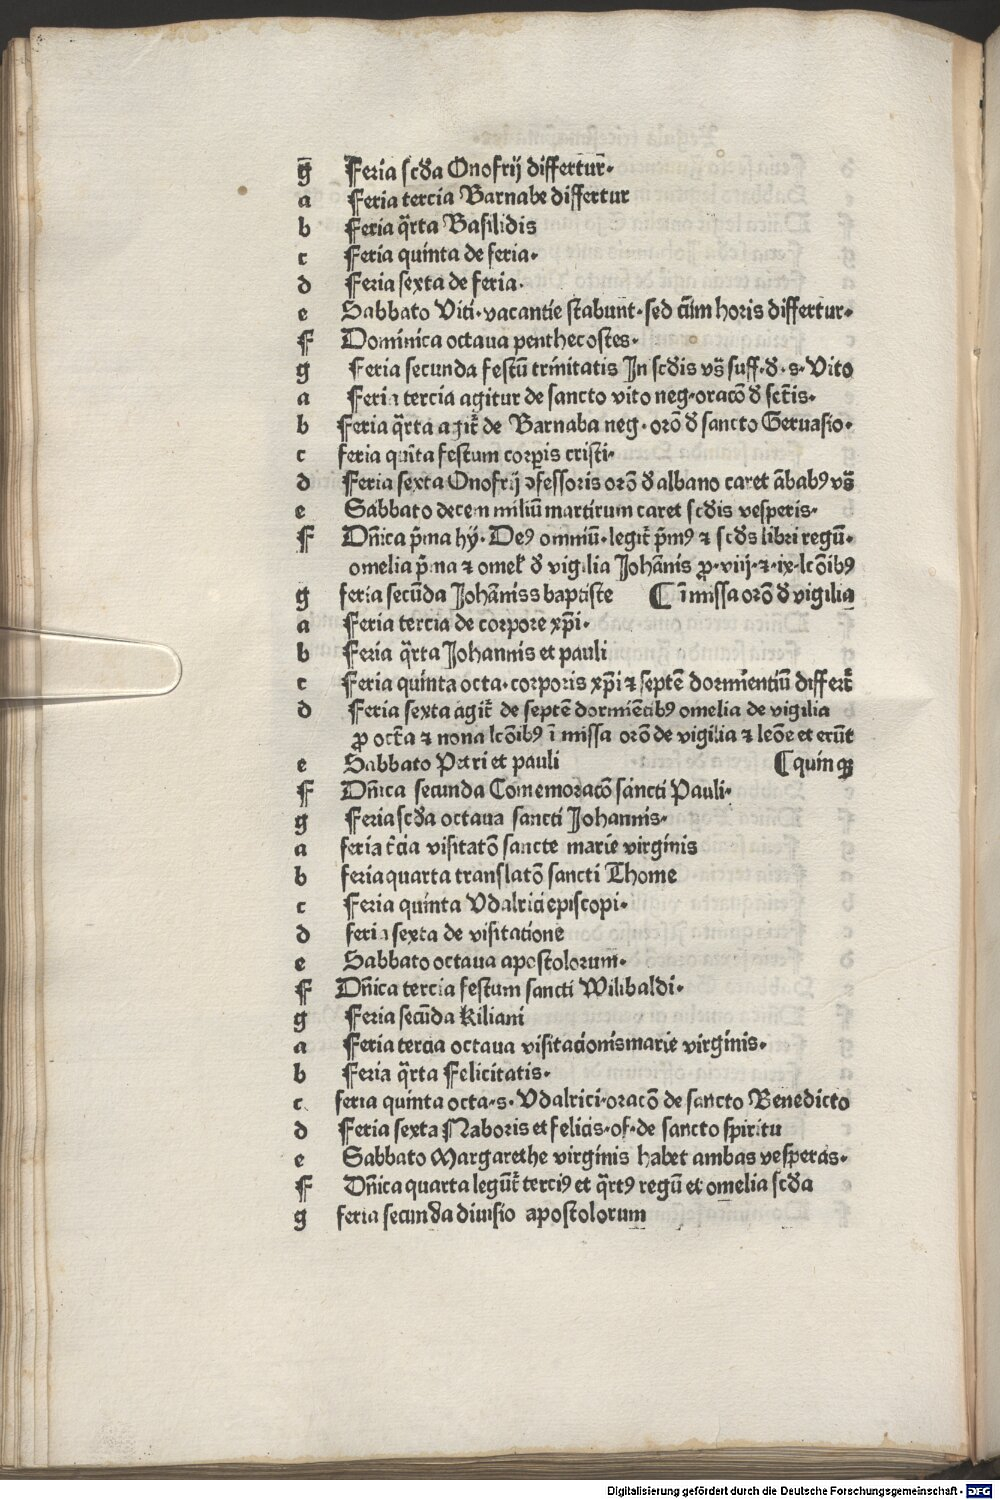 g̅ Feria scd̄a Onofrij differtur̄·
a Feria tercia Barnabe differtur
b Feria q̄rta Basilidis
c Feria quinta de feria·
d Feria sexta de feria·
e Sabbato Viti·vacantie stabunt·sed cūm horis differtur·
F Dominica octaua penthecostes·
g Feria secunda festū trinitatis In scd̄is vs̄ suff·d̄·s·Vito
a Feria tercia agitur de sancto vito neg·oracō d̄ sct̄is·
b Feria q̄rta agit᷑ de Barnaba neg·orō d̄ sancto Geruasio·
c feria quīnta festum corꝑis cristi·
d Feria sexta Onofrij ꝯfessoris orō d̄ albano caret ābabꝰ vs̄
e Sabbato decem miliū martirum caret scd̄is vesperis·
F Dn̄ica p̄ma hy·Deꝰ omniū·legit᷑ p̄mꝰ ⁊ scd̄s libri regū·
omelia p̄ma ⁊ omel᷑ d̄ vigilia Johānis ꝓ·viij·⁊·ix·lcōibꝰ
g feria secūnda Johānis s baptiste ¶ ī missa orō d̄ vigilia
a Feria tercia de corpore xp̄i·
b Feria q̄rta Johannis et pauli
c Feria quinta octa·corporis xp̄i ⁊ septē dormientiū differt᷑
d Feria sexta agit᷑ de septē dormiētibꝰ omelia de vigilia
ꝓ oct̄a ⁊ nona lcōibꝰ ī missa orō de vigilia ⁊ leōe et erūt
e Sabbato Petri et pauli ¶ quinqꝫ
F Dn̄ica secunda Comemoracō sancti Pauli·
g Feria scd̄a octaua sancti Johannis·
a feria t̄cia visitatō sancte marie virginis
b feria quarta translatō sancti Thome
c Feria quinta Vdalrici episcopi·
d feria sexta de visitatione
e Sabbato octaua apostolorum·
F Dn̄ica tercia festum sancti Wilibaldi·
g Feria secūda Kiliani
a Feria tercia octaua visitacionis marie virginis·
b Feria q̄rta Felicitatis·
c feria quinta octa·s·Vdalrici·oracō de sancto Benedicto
d Feria sexta Naboris et felicis·of·de sancto spiritu
e Sabbato Margarethe virginis habet ambas vesperas·
F Dn̄ica quarta legūt᷑ terciꝰ et q̄rtꝰ regū et omelia scd̄a
g feria secunda diuisio apostolorum
Digitalisierung gefördert durch die Deutsche Forschungsgemeinschaft · DFG